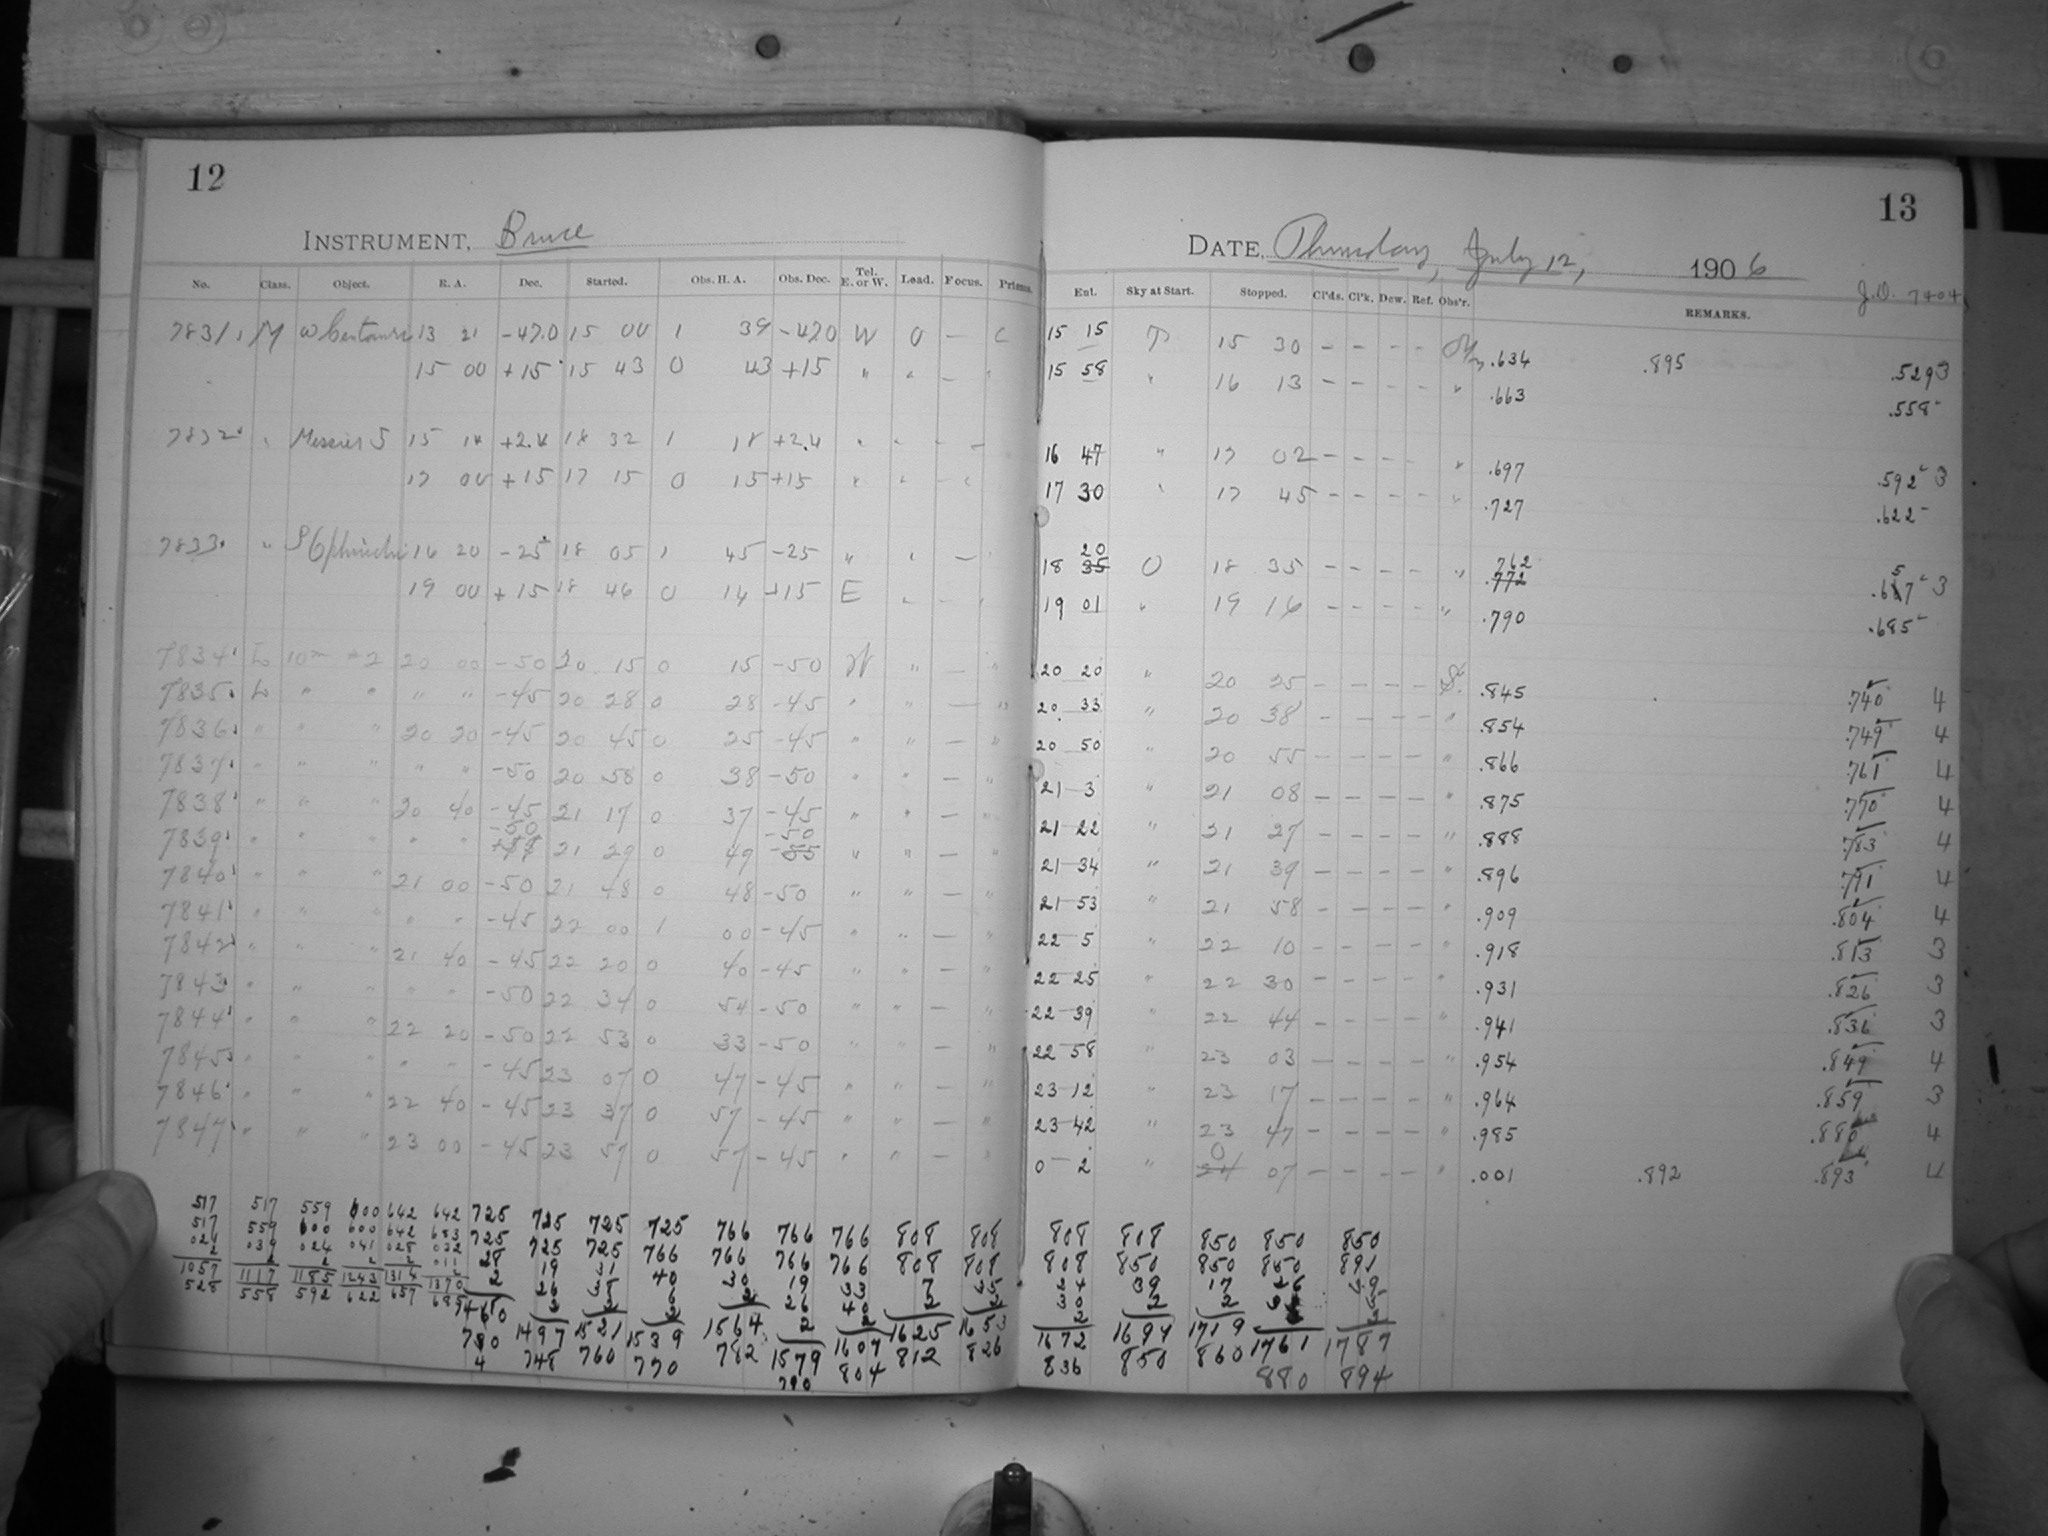 12
INSTRUMENT, Bruce
No. Class. Object. R. A. Dec. Started. Obs. H. A. Obs. Dec. Tel. E. or W. Load. Focus. Prisms.
7831 M ω Centauri 13 21 -47.0 15 00 1 39 -47.0 W 0 — C
15 00 +15 15 43 0 43 +15 " " — "
7832 " Messier 5 15 14 +2.4 18 32 1 18 +2.4 " " —
17 00 +15 17 15 0 15 +15 " " — "
7833 " Ophiuchi 16 20 -25 18 05 1 45 -25 " " —
19 00 +15 18 46 0 14 +15 E " — "
7834 L 10m 20 00 -50 20 15 0 15 -50 W " — "
7835 L " " " " -45 20 28 0 28 -45 " " — "
7836 " " " 20 20 -45 20 45 0 25 -45 " " — "
7837 " " " " " -50 20 58 0 38 -50 " " — "
7838 " " " 20 40 -45 21 17 0 37 -45 " " — "
7839 " " " " " -50 21 29 0 49 -50 -55 " " — "
7840 " " " 21 00 -50 21 48 0 48 -50 " " — "
7841 " " " " " -45 22 00 1 00 -45 " " — "
7842 " " " 21 40 -45 22 20 0 40 -45 " " — "
7843 " " " " " -50 22 34 0 54 -50 " " — "
7844 " " " 22 20 -50 22 53 0 33 -50 " " — "
7845 " " " " " -45 23 07 0 47 -45 " " — "
7846 " " " 22 40 -45 23 37 0 57 -45 " " — "
7847 " " " 23 00 -45 23 57 0 57 -45 " " — "
517 517 559 600 642 642 725 725 725 725 766 766 766 808 808
517 559 600 600 642 683 725 725 725 766 766 766 766 808 808
021 039 024 041 028 032 28 19 31 40 30 19 33 7 35
2 2 2 2 2 011 2 26 38 6 2 26 40 2 2
1057 1117 1185 1243 1314 1370 1460 1497 1521 1539 1564 1579 1607 1625 1653
528 558 592 622 657 685 730 748 760 770 782 790 804 812 826
13
DATE, Thursday, July 12, 1906
J.D. 7404
Ent. Sky at Start. Stopped. Cl'ds. Cl'k. Dew. Ref. Obs'r. REMARKS.
15 15 15 30 — — — — .634 .895 .529 3
15 58 " 16 13 — — — — " .663 .558
16 47 " 17 02 — — — — " .697 .592 3
17 30 " 17 45 — — — — " .727 .622
18 20 35 0 18 35 — — — — " .762 .772 .657 3
19 01 " 19 16 — — — — " .790 .685
20 20 " 20 25 — — — — S. .845 .740 4
20 33 " 20 38 — — — — " .854 .749 4
20 50 " 20 55 — — — — " .866 .761 4
21 3 " 21 08 — — — — " .875 .770 4
21 22 " 21 27 — — — — " .888 .783 4
21 34 " 21 39 — — — — " .896 .791 4
21 53 " 21 58 — — — — " .909 .804 4
22 5 " 22 10 — — — — " .918 .813 3
22 25 " 22 30 — — — — " .931 .826 3
22 39 " 22 44 — — — — " .941 .836 3
22 58 " 23 03 — — — — " .954 .849 4
23 12 " 23 17 — — — — " .964 .859 3
23 42 " 23 47 — — — — " .985 .880 4
0 2 " 0 24 07 — — — — " .001 .892 .893 4
808 808 850 850 850
808 850 850 850 891
24 39 17 26
30 2 2
1672 1697 1719 1761 1787
836 850 860 880 894